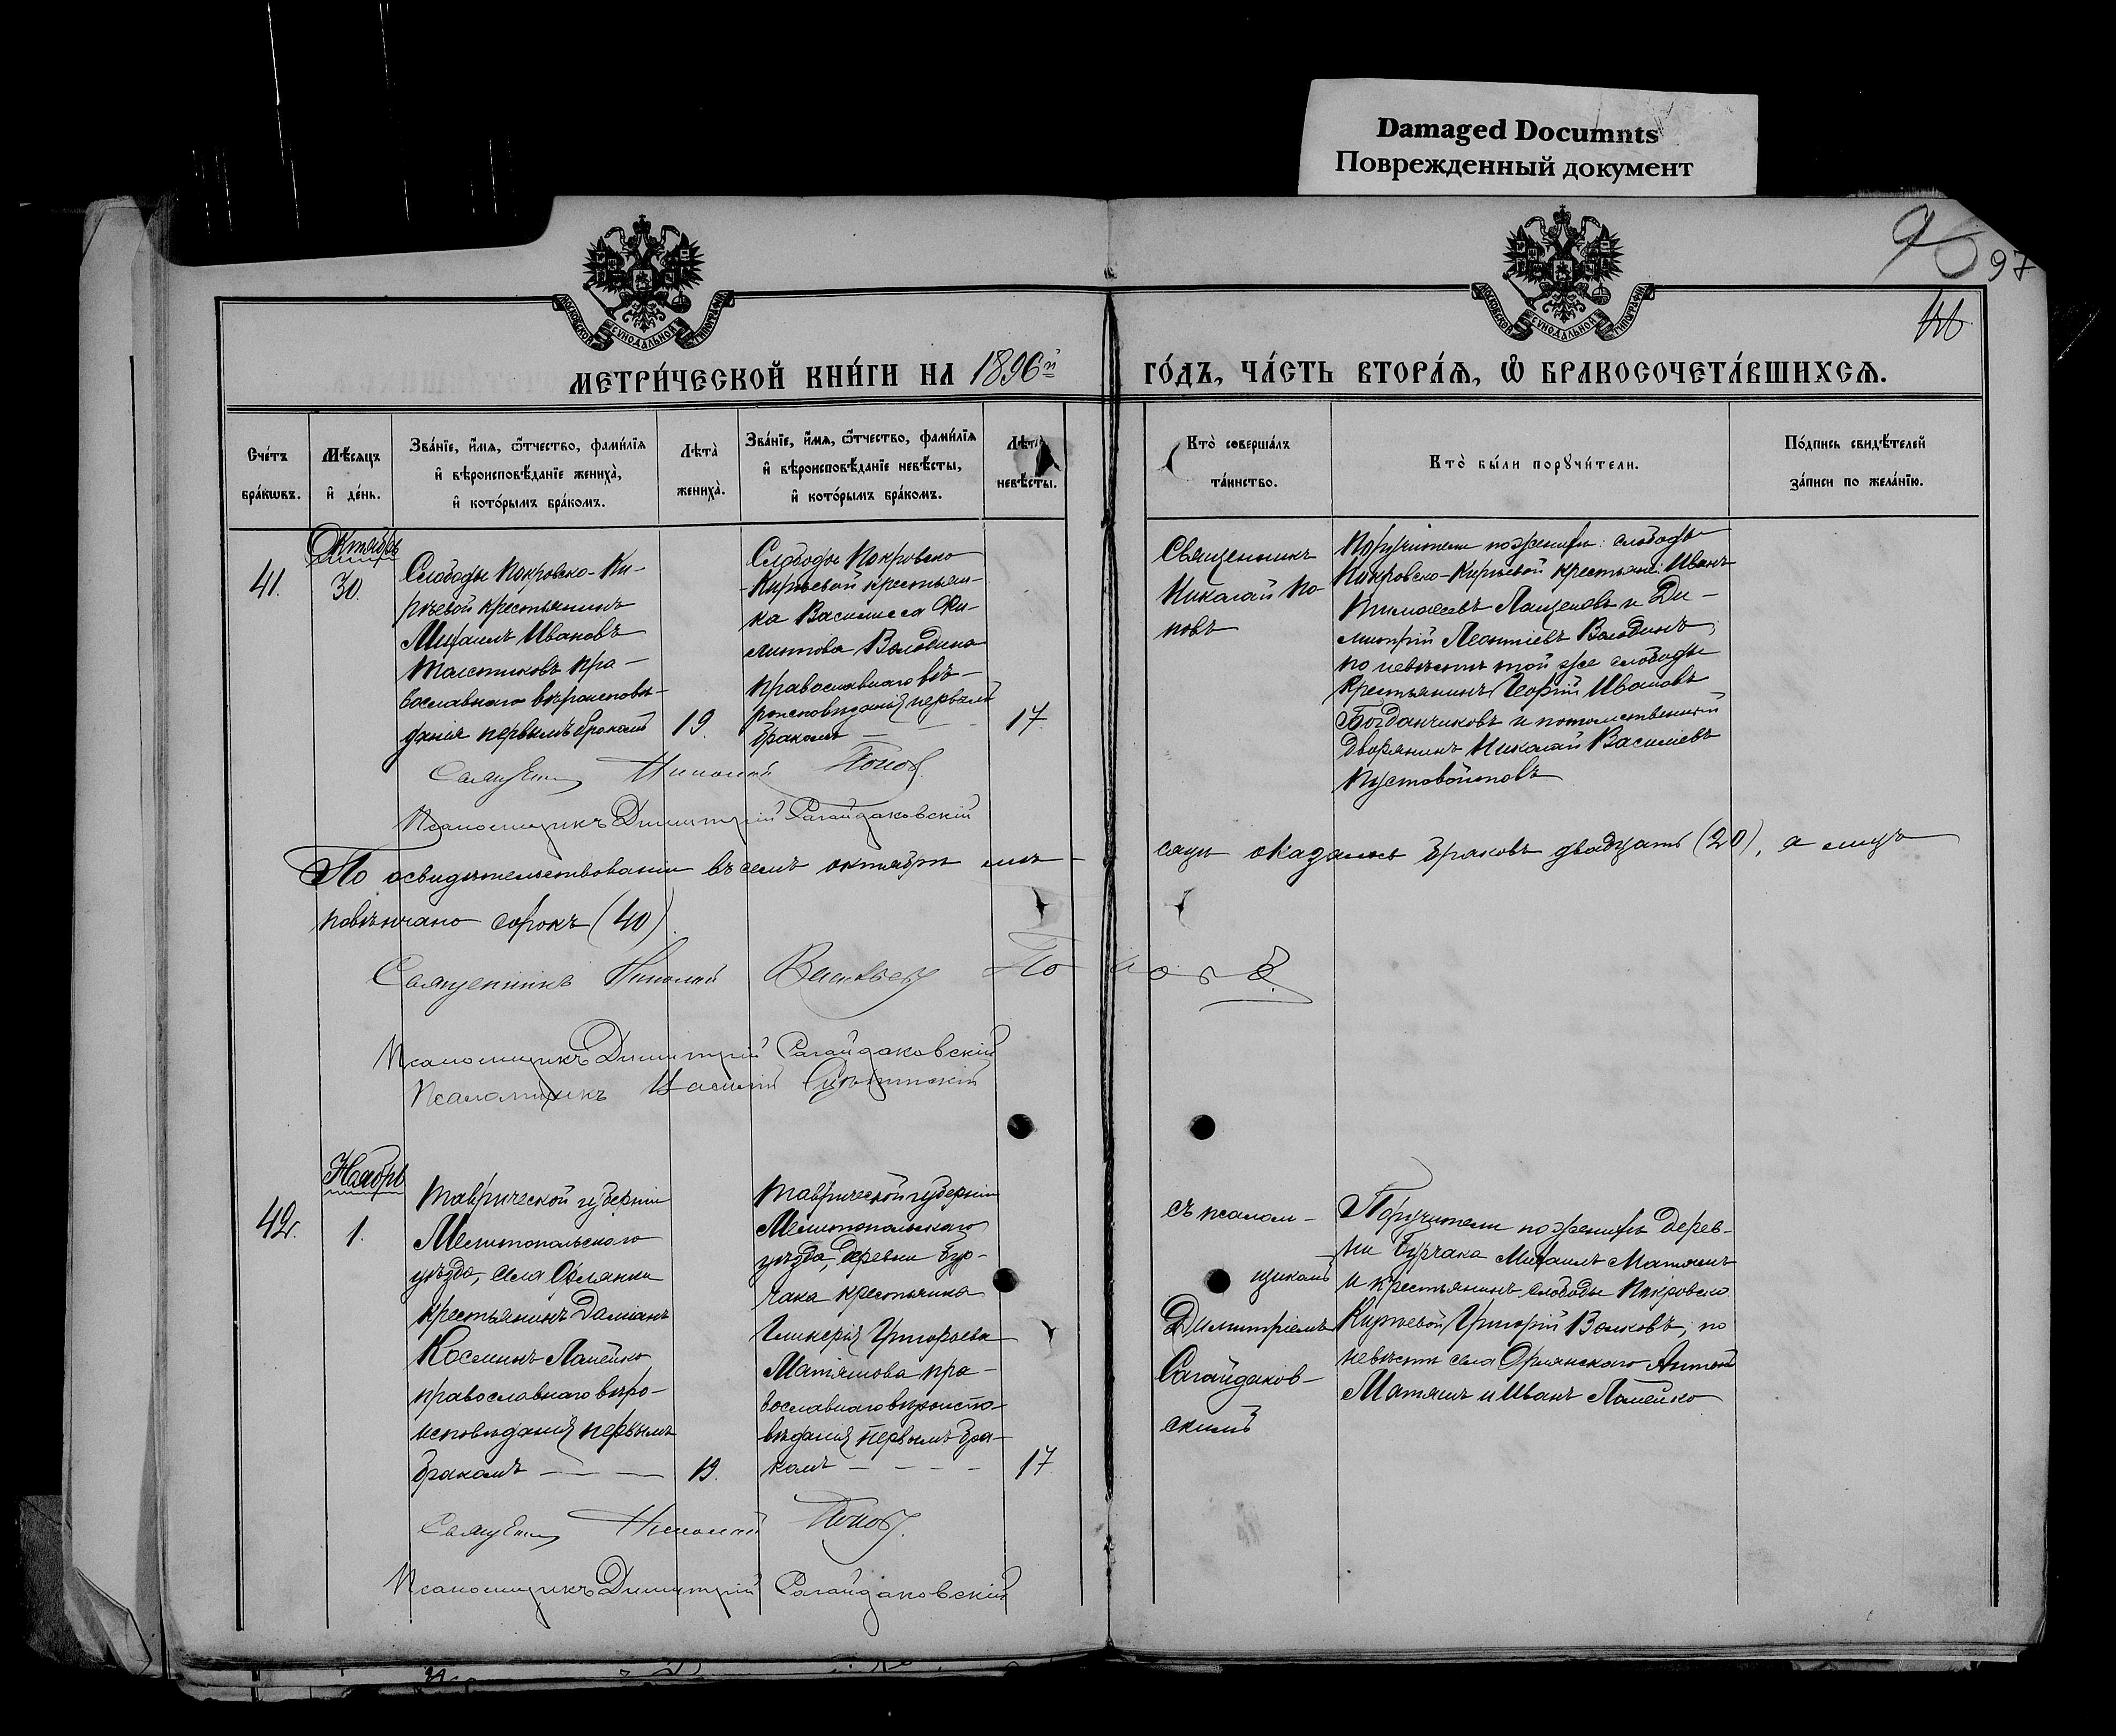 Damaged Documnts
Поврежденный документ
97
МОСКОВСКОЙ СУНОДАЛЬНОЙ ТИПОГРАФІИ
МОСКОВСКОЙ СУНОДАЛЬНОЙ ТИПОГРАФІИ
МЕТРИ́ЧЕСКОЙ КНИ́ГИ НА 1896й ГО́ДЪ, ЧА́СТЬ ВТОРА́Я, Ѽ БРАКОСОЧЕТА́ВШИХСѦ.
Сче́тъ бра́кѡвъ.
Мѣ́сяцъ и҆ де́нь.
Зва́нїе, и҆́мѧ, ѻ҆́тчество, фами́лїѧ
и҆ вѣроисповѣ́данїе жениха̀,
и҆ кото́рымъ бра́комъ.
Лѣта̀ жениха̀.
Зва́нїе, и҆́мѧ, ѻ҆́тчество, фами́лїѧ
и҆ вѣроисповѣ́данїе невѣ́сты,
и҆ кото́рымъ бра́комъ.
Лѣта̀ невѣ́сты.
Кто̀ соверша́лъ
та́инство.
Кто̀ бы́ли порꙋчи́тели.
По́дпись свидѣ́телей
за́писи по жела́нїю.
41.
Октябрь
30.
Слободы Покровско-Ки-
рѣевой крестьянинъ
Михаилъ Ивановъ
Толстиковъ пра-
вославнаго вѣроисповѣ-
данія первымъ бракомъ
19.
Слободы Покровско
-Кирѣевой крестьян-
ка Василисса Фи-
липпова Володина
православнаго вѣ-
роисповѣданія первымъ
бракомъ
17.
Священникъ
Николай По-
повъ
Поручители по женихѣ: слободы
Покровско-Кирѣевой крестьяне: Иванъ
Лащеновъ и Ди-
митрій Леонтіевъ Володинъ;
по невѣстѣ той же слободы
крестьянинъ Георгій Ивановъ
Богданчиковъ и потомственный
дворянинъ Николай Васильевъ
Пустовойтовъ
Священн Николай Попов
Псаломщикъ Димитрій Сагайдаковскій
По освидѣтельствованіи въ семъ октябрѣ мѣ-
сяцѣ оказалось браковъ двадцать (20), а лицъ
повѣнчано сорокъ (40).
Священникъ Николай Васильевъ Поповъ.
Псаломщикъ Димитрій Сагайдаковскій
Псаломщикъ Василій
42.
Ноябрь
1.
Таврической губерніи
Мелитопольскаго
уѣзда, села Орлянки
крестьянинъ Даміанъ
Косминъ Ломейко
православнаго вѣро-
исповѣданія первымъ
бракомъ
19.
Таврической губерніи
Мелитопольскаго
уѣзда, деревни Бур-
чака крестьянка
Гликерія Григорьева
Матяшова пра-
вославнаго вѣроиспо-
вѣданія первымъ бра-
комъ
17
съ псалом-
щикомъ
Димитріемъ
Сагайдаков-
скимъ
Поручители по женихѣ дерев-
ни Бурчака Михаилъ Матяшъ
и крестьянинъ слободы Покровско
Кирѣевой Григорій Волковъ; по
невѣстѣ села Орлянскаго Антоній
Матяшъ и Иванъ Ломейко
Священн Николай Попов.
Псаломщикъ Димитрій Сагайдаковскій